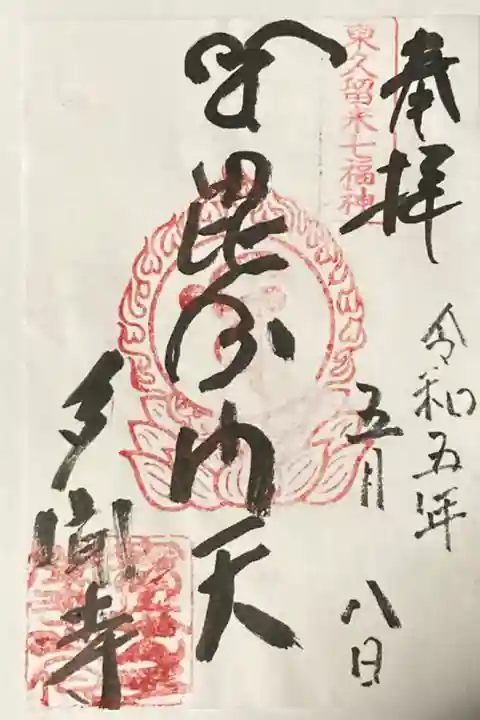 奉拝
東久留米七福神
令和五年
五月
八日
毘沙門天
多聞寺